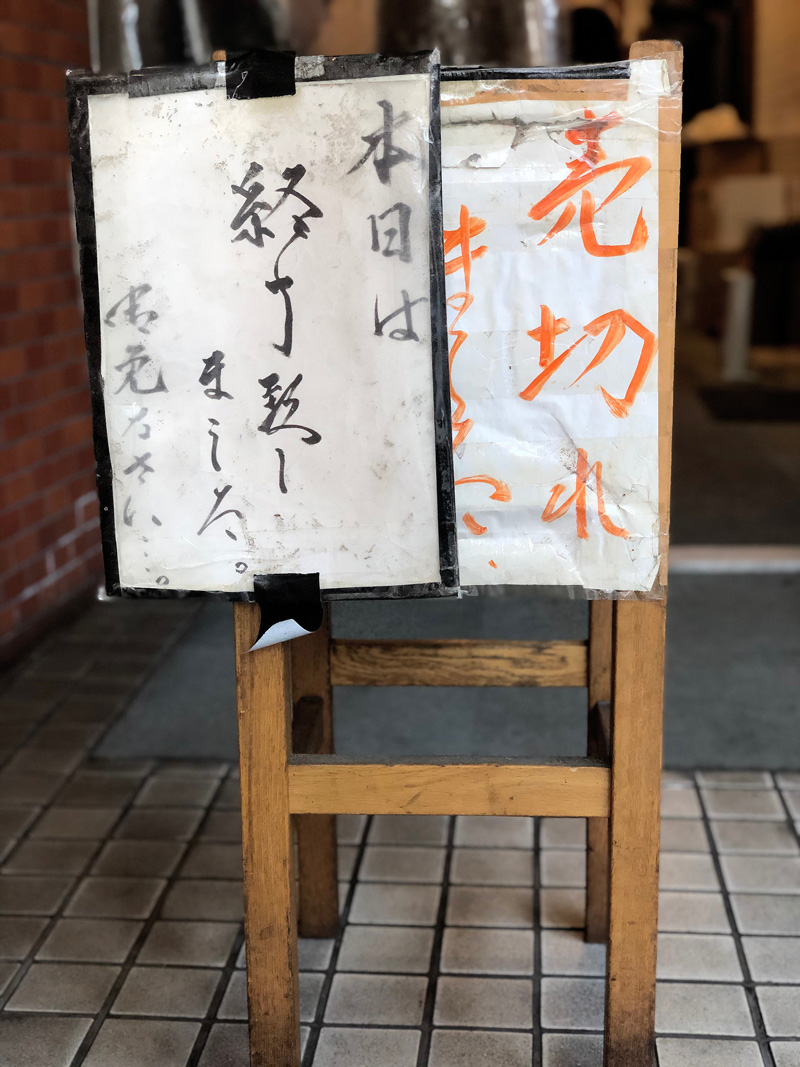 売切れ
ました.
本日は
終了致し
ました。
御免なさい…。